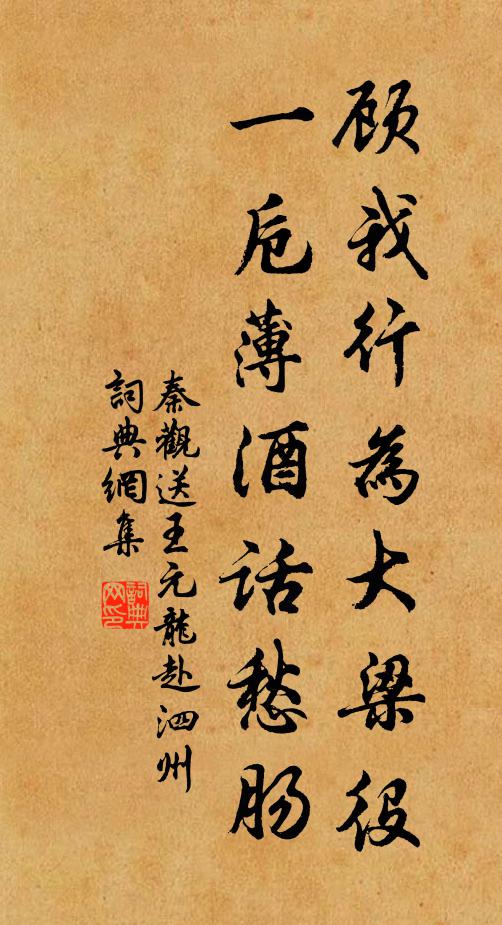 顾我行為大梁役
一卮薄酒話愁腸
秦觀送王元龍赴泗州
詞典網集
詞典
网印